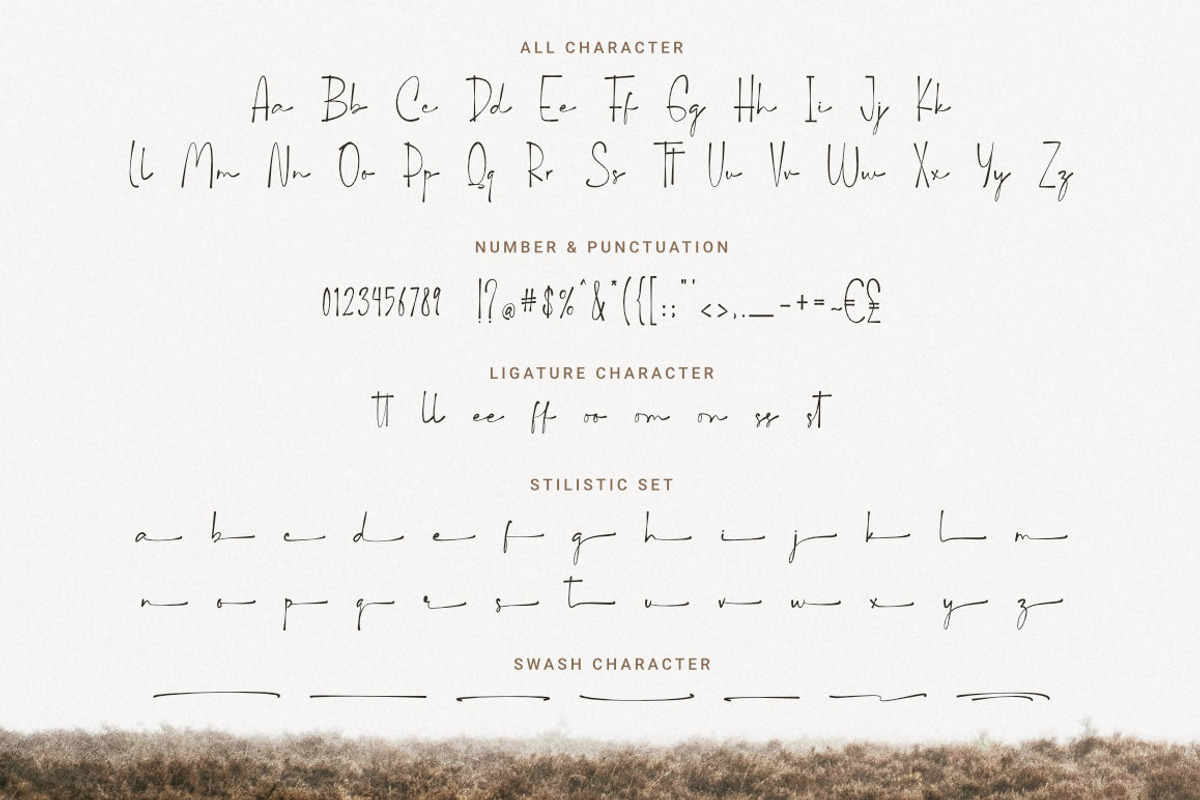 ALL CHARACTER
Aa Bb Cc Dd Ee Ff Gg Hh Ii Jj Kk
Ll Mm Nn Oo Pp Qq Rr Ss Tt Uu Vv Ww Xx Yy Zz
NUMBER & PUNCTUATION
0123456789 !?@#$%^&*({[:;"'<>,._-+=~€£
LIGATURE CHARACTER
tt ll ee ff oo om on ss st
STILISTIC SET
a b c d e f g h i j k l m
n o p q r s t u v w x y z
SWASH CHARACTER